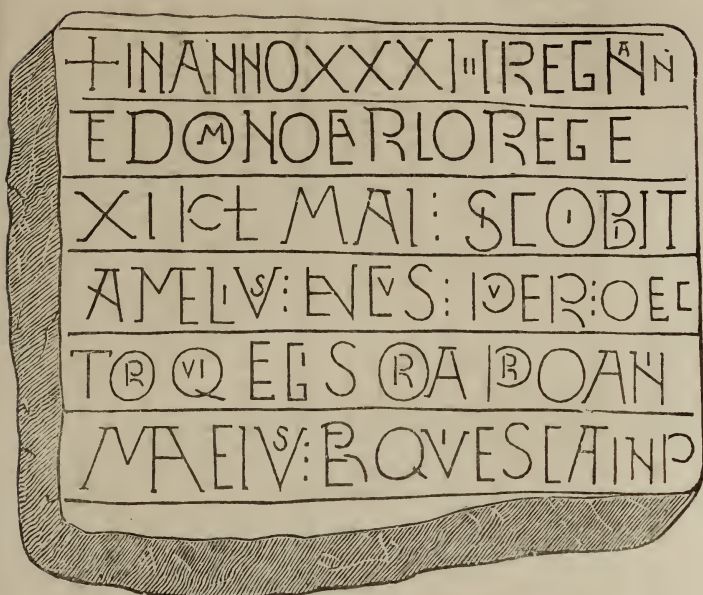 + IN ANNO XXXIIII REGNAN
TE DOMNO CARLO REGE
XI KL MAI : SIC OBIIT
AMELIVS : ENEVS : PVER : O LEC
TOR QVI LEGS ORA PRO ANI
MA EIVS : REQVIESCA IN P